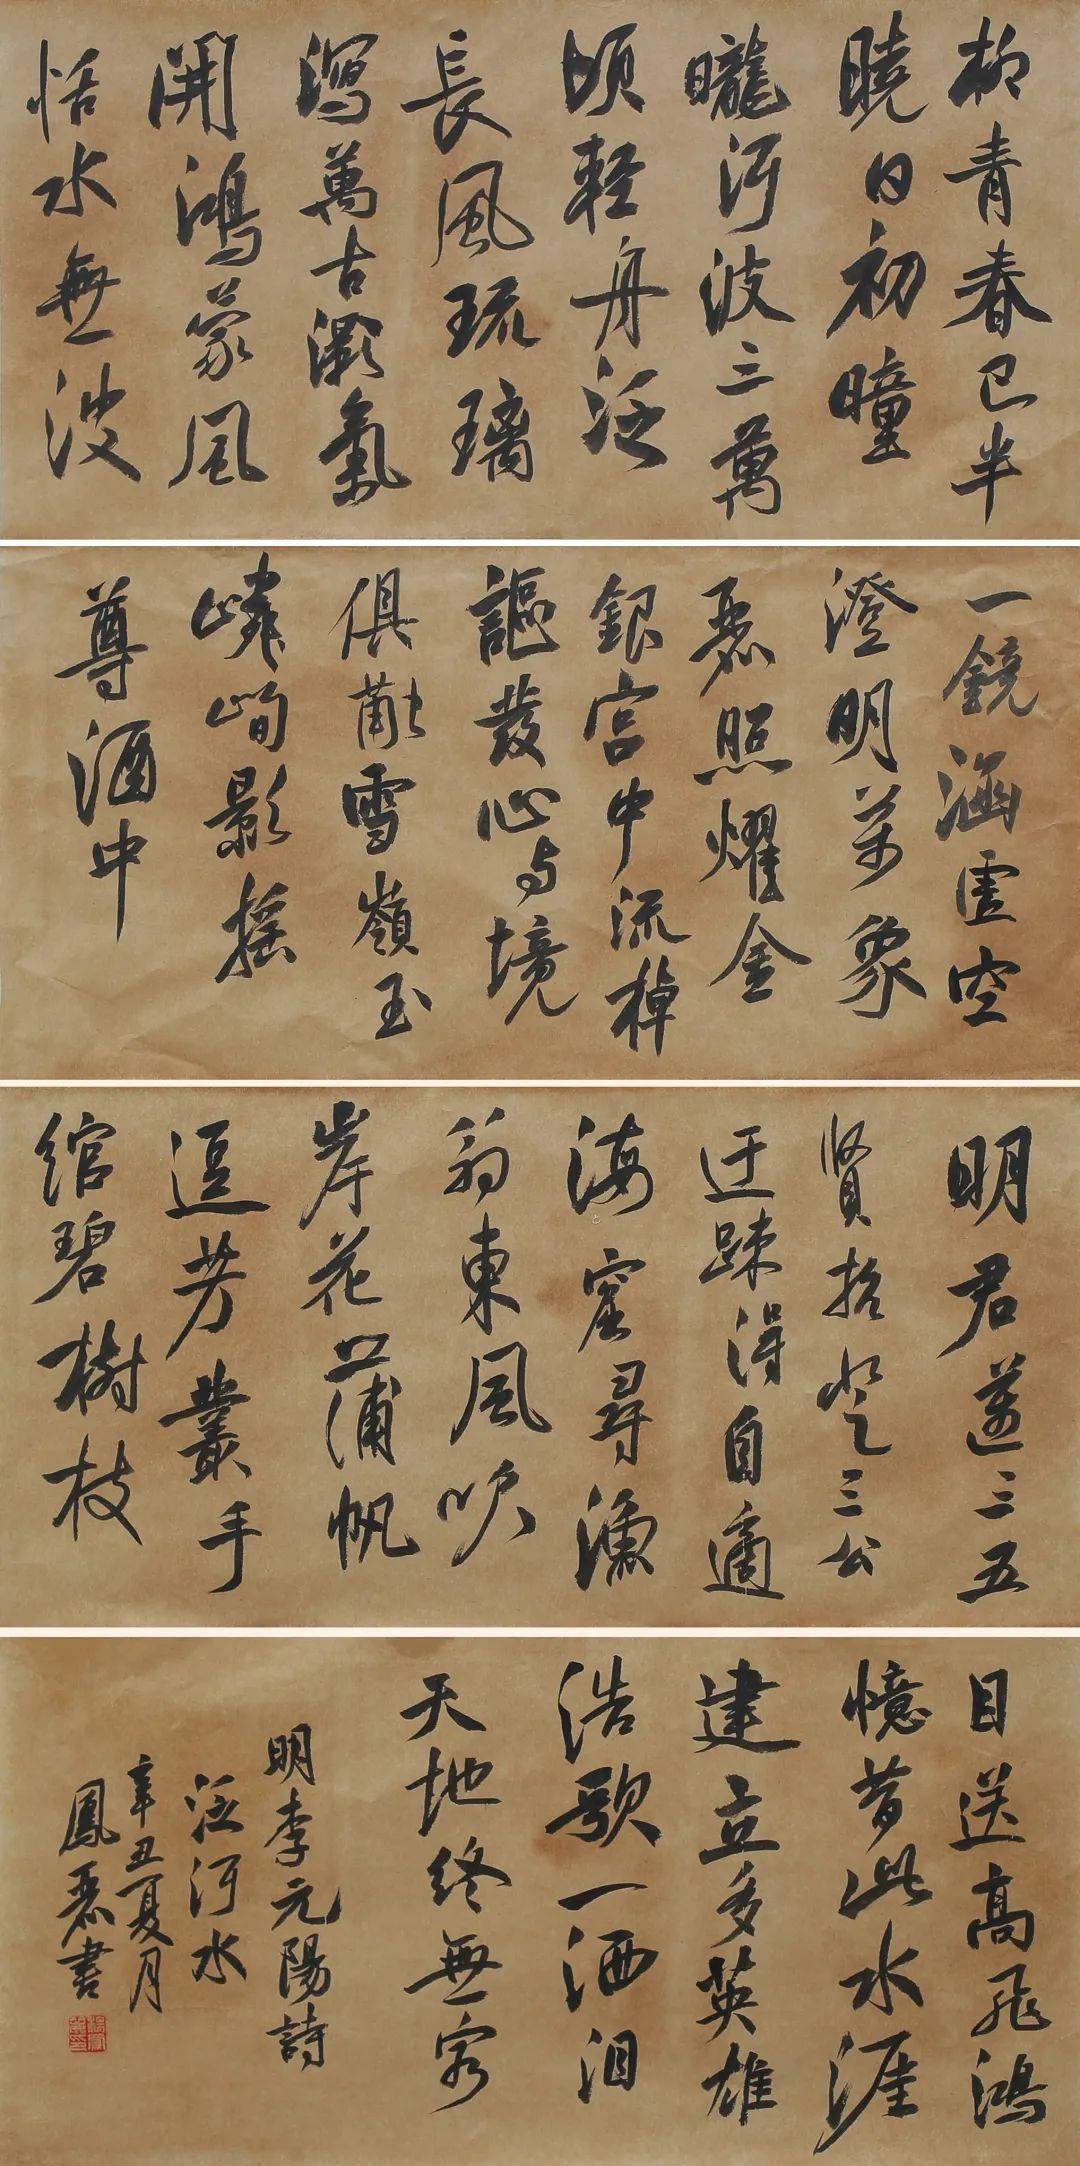 柳青春已半
曉日初曈
曨洱波三萬
頃輕舟泛
長風琉璃
瀉萬古灝氣
開鴻蒙風
恬水無波
一鏡涵虛空
澄明萬象
麗照耀金
銀宮中流棹
謳發心与境
俱融雪嶺玉
嶙峋影搖
尊酒中
明君邁三五
賢哲登三公
迂疎得自適
海窟尋漁
翁東風吹
岸花蒲帆
逗芳叢手
綰碧樹枝
目送高飛鴻
憶昔此水涯
建立多英雄
浩歌一洒泪
天地終無窮
明李元陽詩
泛洱水
辛丑夏月
鳳麗書